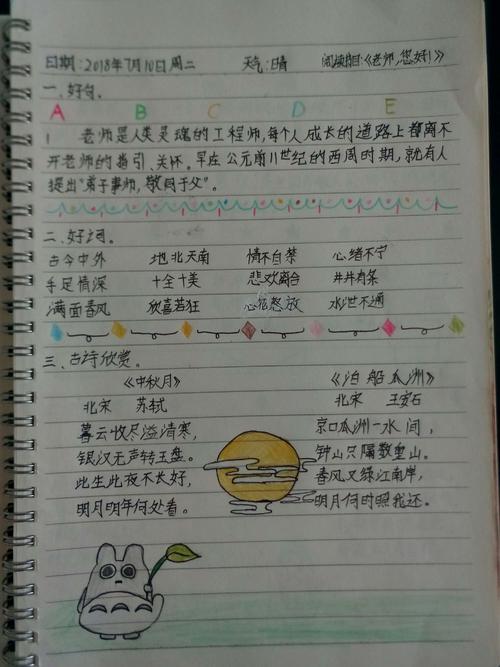 日期:2018年7月10日周二 天气:晴 阅读书目:《老师,您好!》
一、好句。
A B C D E
1 老师是人类灵魂的工程师,每个人成长的道路上都离不
开老师的指引、关怀。早在公元前11世纪的西周时期,就有人
提出"弟子事师,敬同于父"。
二、好词。
古今中外 地北天南 情不自禁 心绪不宁
手足情深 十全十美 悲欢离合 井井有条
满面春风 欣喜若狂 心花怒放 水泄不通
三、古诗欣赏。
《中秋月》 《泊船瓜洲》
北宋 苏轼 北宋 王安石
暮云收尽溢清寒, 京口瓜洲一水间,
银汉无声转玉盘。 钟山只隔数重山。
此生此夜不长好, 春风又绿江南岸,
明月明年何处看。 明月何时照我还。